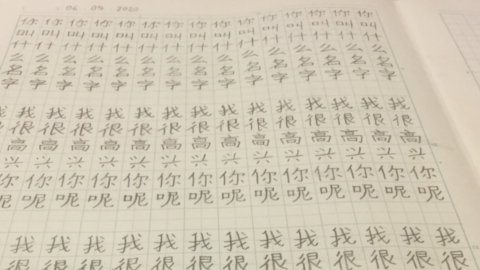 你叫什么名字
你叫什么名字
你叫什么名字
你叫什么名字
你叫什么名字
你叫什么名字
你叫什么名字
你叫什么名字
你叫什么名字
你叫什么名字
你叫什么名字
你叫什么名字
你叫什么名字
我很高兴你呢
我很高兴你呢
我很高兴你呢
我很高兴你呢
我很高兴你呢
我很高兴你呢
我很高兴你呢
我很高兴你呢
我很高兴你呢
我很高兴你呢
我很高兴你呢
我很高兴你呢
我很高兴你呢
我很高兴你呢
我很
我很
我很
我很
我很
我很
我很
我很
我很
我很
我很
我很
我很